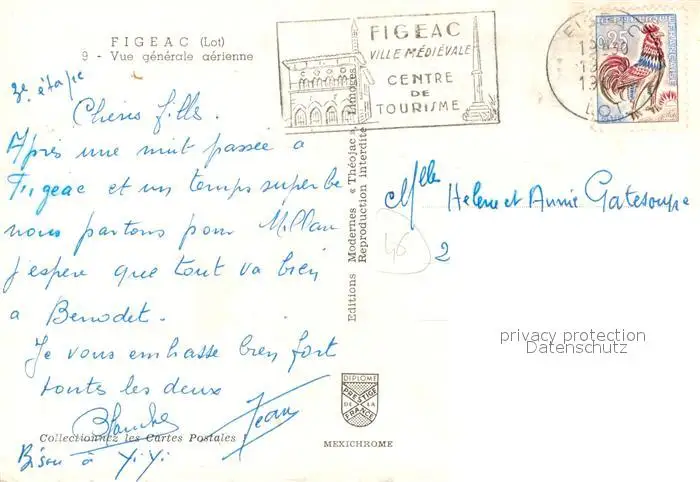 FIGEAC (Lot)
9 - Vue générale aérienne
3e étape
Chères filles.
Après une nuit passée à
Figeac et un temps superbe
nous partons pour Millau
j'espère que tout va bien
a Benodet.
Je vous embrasse bien fort
toutes les deux
Blanche Jean
Collectionnez les Cartes Postales !
Bisou à YiYi
Editions Modernes « Théojac », Limoges
Reproduction Interdite
FIGEAC
VILLE MÉDIÉVALE
CENTRE
DE
TOURISME
LOT
Mlle Helene et Annie Gatesoupe
2
46
privacy protection
Datenschutz
DIPLOME
PRESTIGE
DE LA
FRANCE
MEXICHROME